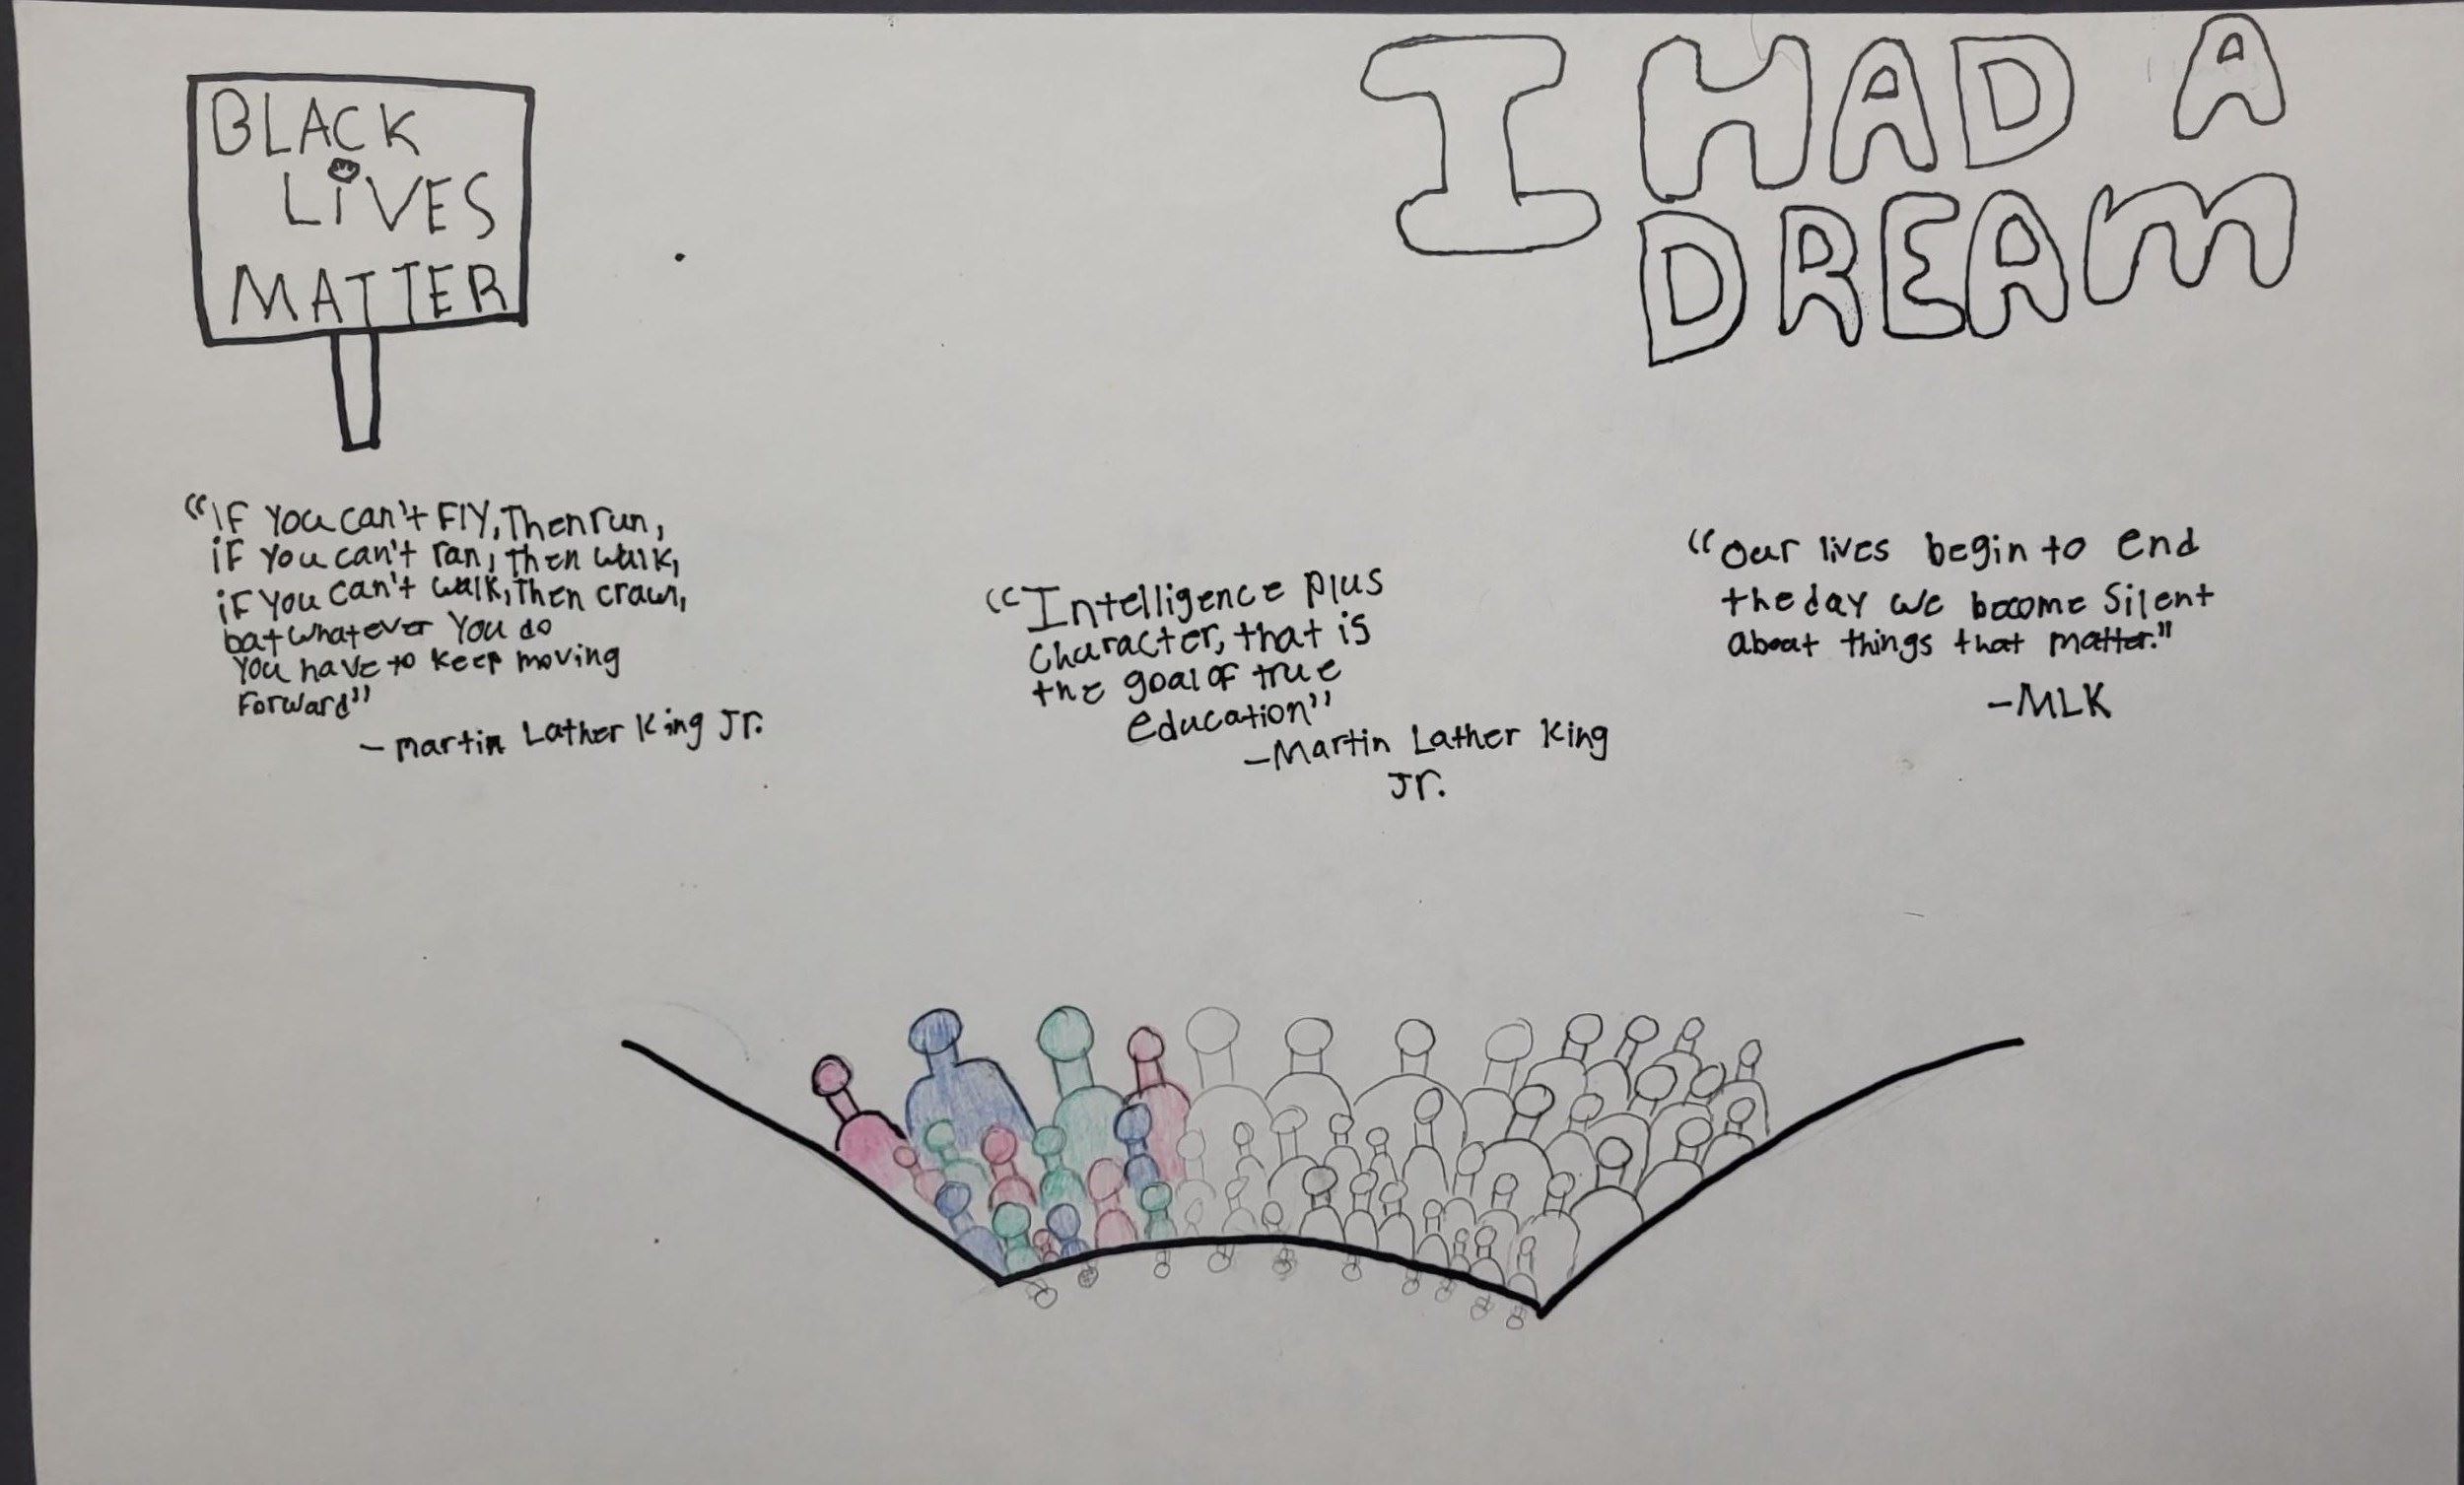 BLACK
LiVES
MATTER
I HAD A
DREAM
"IF You can't FlY, Then run,
iF You can't run, then walk,
iF You can't walk, Then crawl,
but whatever You do
You have to keep moving
Forward"
- Martin Luther King Jr.
"Intelligence plus
character, that is
the goal of true
education"
-Martin Luther King
Jr.
"Our lives begin to end
the day we become Silent
About things that matter."
-MLK